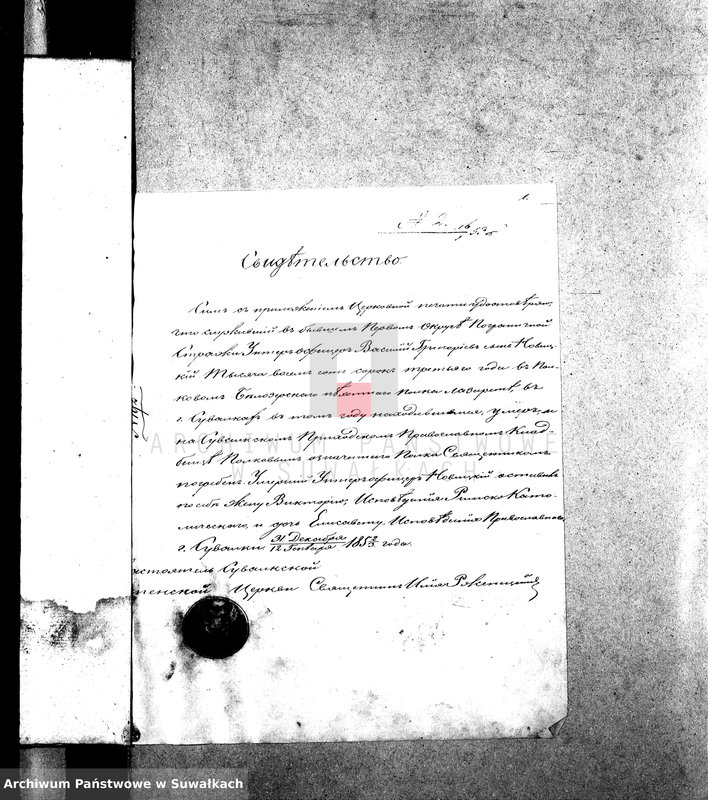 1.
№ 2.
Свидѣтельство
Симъ съ приложеніемъ Церковной печати удостовѣряю,
что служившій въ бывшемъ Первомъ Округѣ Пограничной
Стражи Унтеръ офицеръ Василій Григорьевъ сынъ Новиц-
кій тысяча восемь сотъ сорокъ третьяго года въ Пол-
ковомъ Бѣлозерскаго пѣхотнаго полка лазаретѣ, въ
г. Сувалкахъ въ томъ году находившемся, умеръ, и
на Сувалкскомъ Приходскомъ Православномъ Клад-
бищѣ Полковымъ означеннаго Полка Священникомъ
погребенъ. Умершій Унтеръ офицеръ Новицкій оставилъ
по себѣ жену Викторію, Исповѣданія Римско Като-
лическаго, и дочь Елисавету, Исповѣданія Православнаго.
г. Сувалки 31 Декабря / 12 Января 185 2/3 года.
Настоятель Сувалкской
Церкви Священникъ
ARCHIWUM PAŃSTWOWE
W SUWAŁKACH
Archiwum Państwowe w Suwałkach